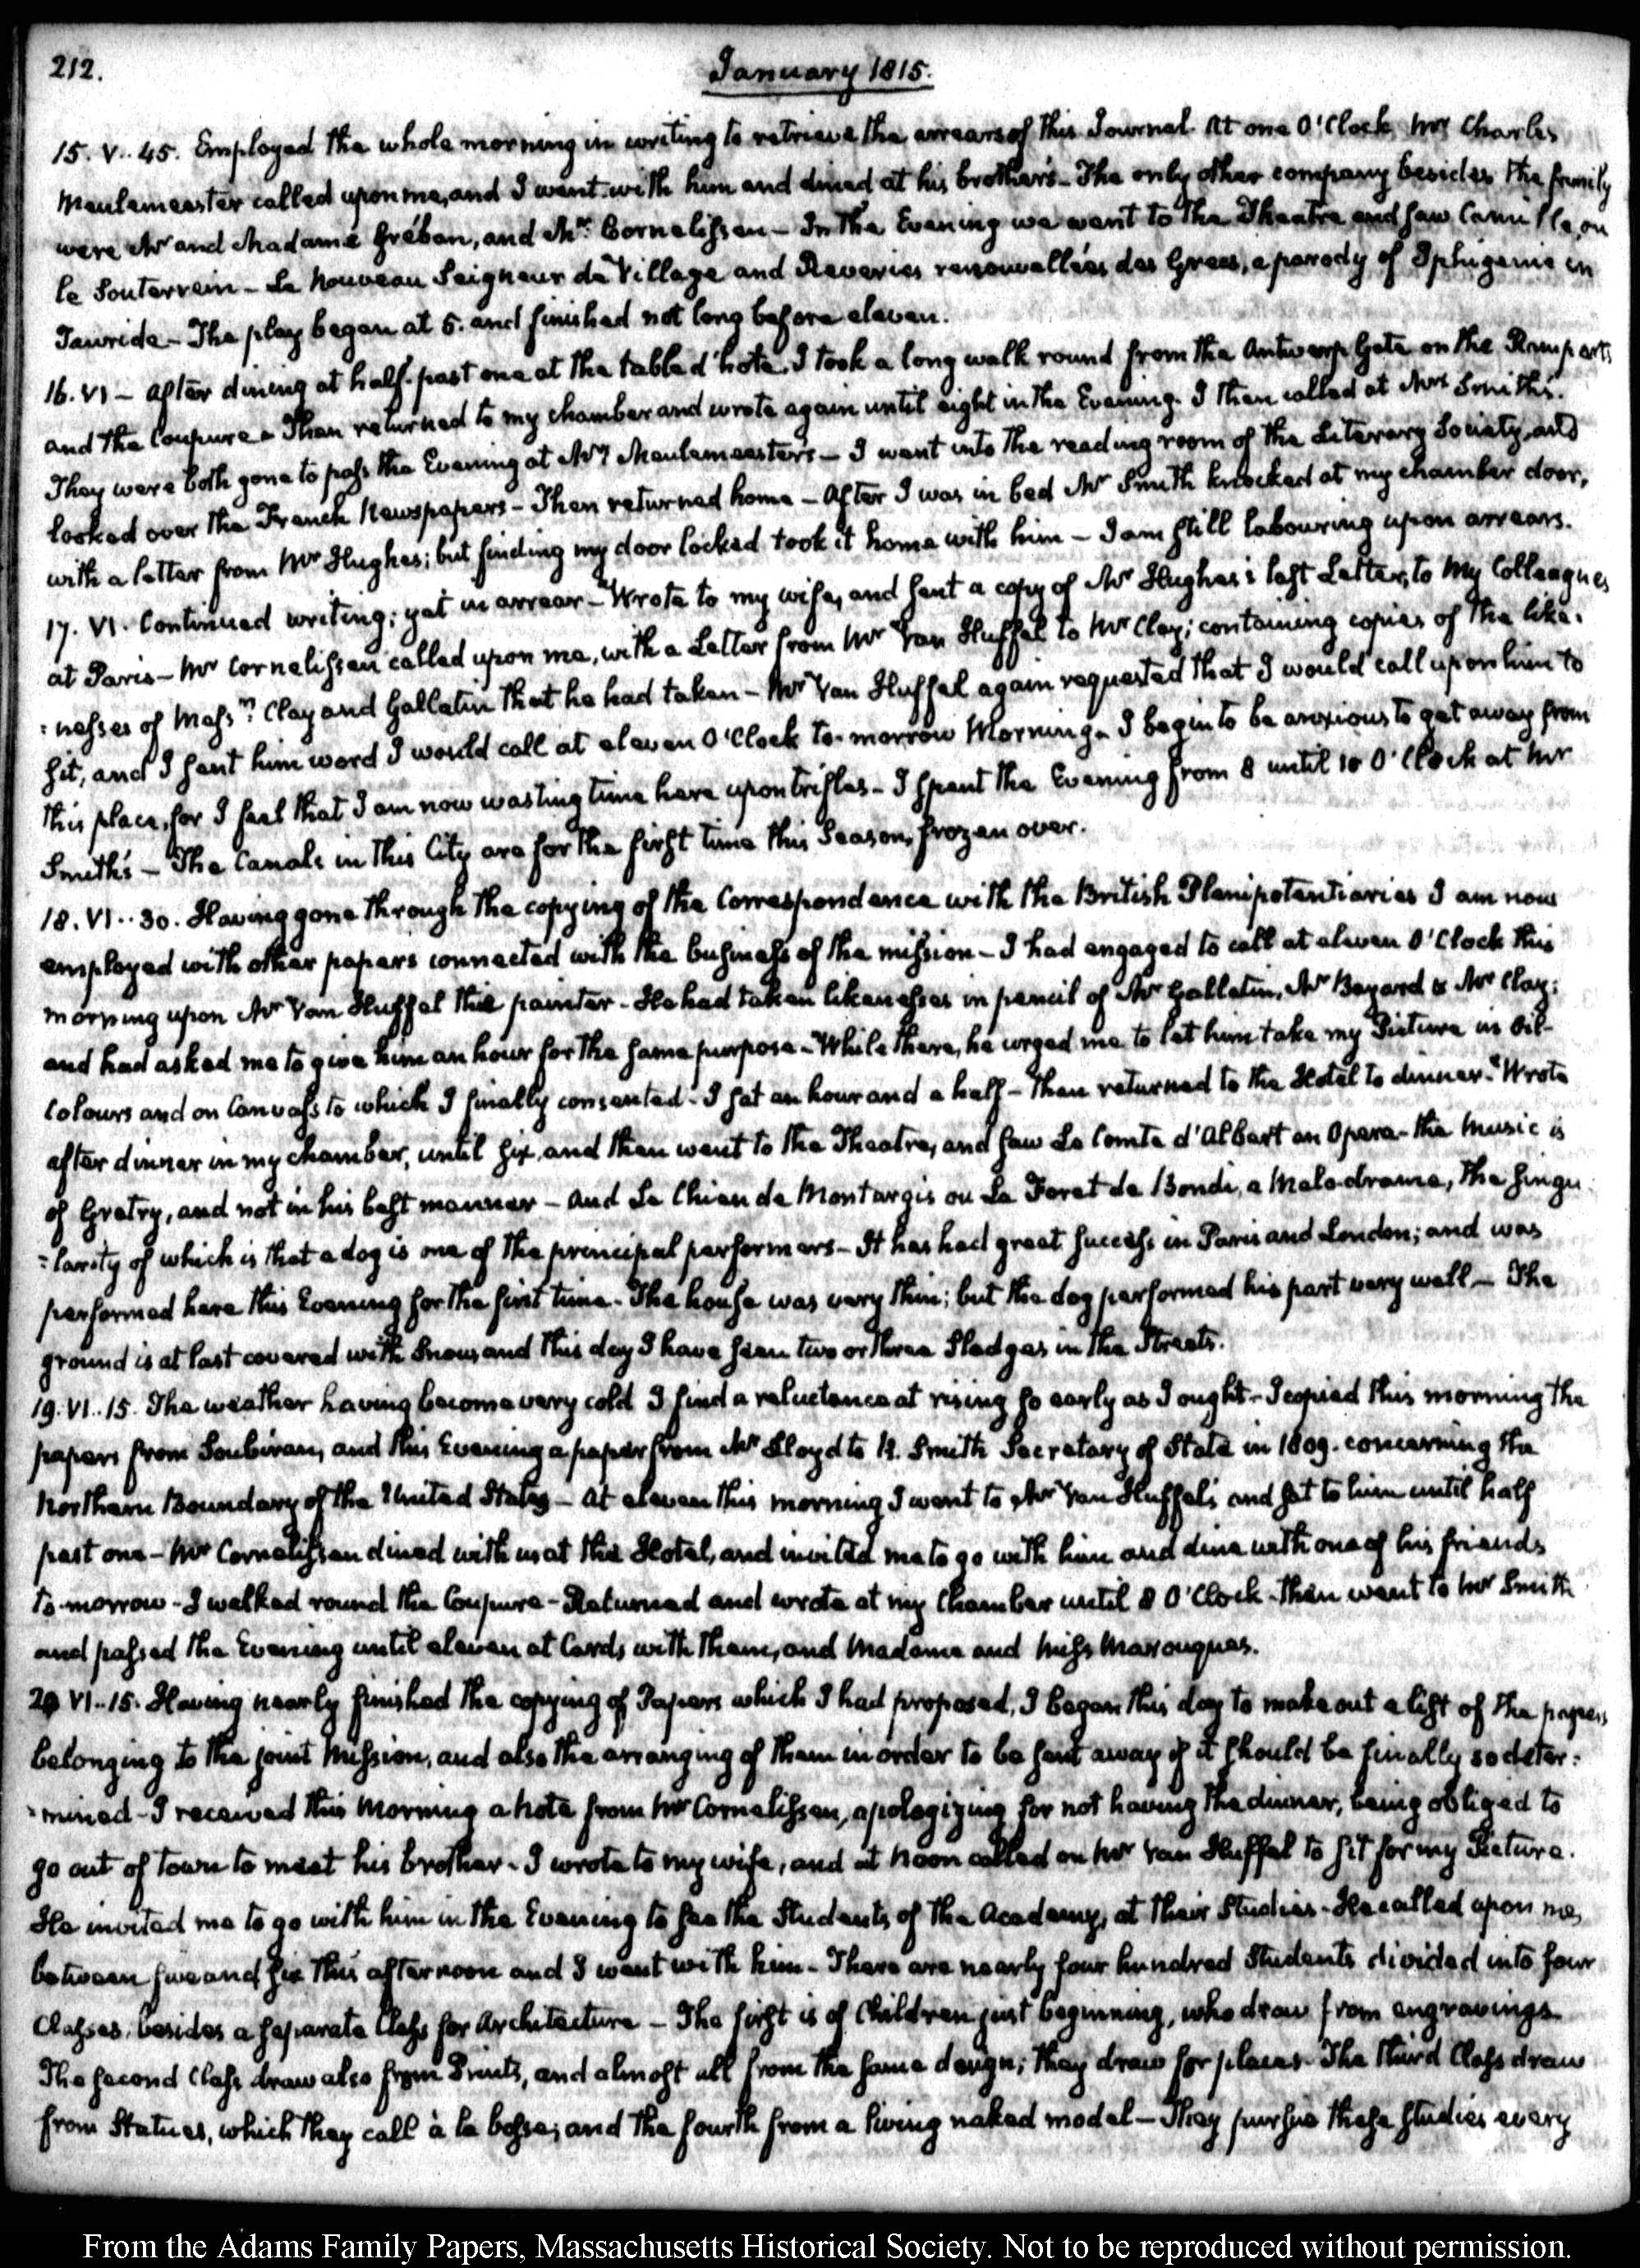 212.
January 1815.
15. V..45. Employed the whole morning in writing to retrieve the arrears of this Journal. At one O'Clock, Mr Charles
Meulemeester called upon me, and I went with him and dined at his brother's – The only other company besides the family
were Mr and Madame Gréban, and Mr. Cornelissen – In the Evening we went to the Theatre and saw Camille, ou
le Souterrein – Le Nouveau Seigneur de Village and Reveries renouvellées des Grecs, a parody of Iphigenie en
Tauride – The play began at 5. and finished not long before eleven.
16. VI – After dining at half-past one at the table d'hote, I took a long walk round from the Antwerp Gate on the Ramparts
and the Coupure – Then returned to my chamber and wrote again until eight in the Evening. I then called at Mrs Smith's.
They were both gone to pass the Evening at Mr Meulemeester's – I went into the reading room of the Literary Society, and
looked over the French Newspapers – Then returned home – After I was in bed Mr Smith knocked at my chamber door,
with a letter from Mr Hughes; but finding my door locked took it home with him – I am still labouring upon arrears.
17. VI. Continued writing; yet in arrear – Wrote to my wife, and sent a copy of Mr Hughes's last Letter, to my Colleagues
at Paris – Mr Cornelissen called upon me, with a Letter from Mr Van Huffel to Mr Clay; containing copies of the like-
:nesses of Messrs Clay and Gallatin that he had taken – Mr Van Huffel again requested that I would call upon him to
sit, and I sent him word I would call at eleven O'Clock to-morrow Morning. I begin to be anxious to get away from
this place, for I feel that I am now wasting time here upon trifles – I spent the Evening from 8 until 10 O'Clock at Mr
Smith's – The Canals in this City are for the first time this Season, frozen over.
18. VI..30. Having gone through the copying of the Correspondence with the British Plenipotentiaries I am now
employed with other papers connected with the business of the mission – I had engaged to call at eleven O'Clock this
morning upon Mr Van Huffel the painter – He had taken likenesses in pencil of Mr Gallatin, Mr Bayard & Mr Clay;
and had asked me to give him an hour for the same purpose – While there, he urged me to let him take my Picture in Oil-
Colours and on Canvass to which I finally consented – I sat an hour and a half – Then returned to the Hotel to dinner. Wrote
after dinner in my chamber, until six, and then went to the Theatre, and saw Le Comte d'Albert an Opera – the Music is
of Gretry, and not in his best manner – and Le Chien de Montargis ou La Foret de Bondi, a Melo-drame, the singu:
:larity of which is that a dog is one of the principal performers – It has had great success in Paris and London; and was
performed here this Evening for the first time – The house was very thin; but the dog performed his part very well – The
ground is at last covered with Snow, and this day I have seen two or three Sledges in the Streets.
19. VI..15. The weather having become very cold I find a reluctance at rising so early as I ought – I copied this morning the
papers from Soubiran, and this Evening a paper from Mr Lloyd to R. Smith Secretary of State in 1809. concerning the
Northern Boundary of the United States – At eleven this morning I went to Mr Van Huffel's and sat to him until half
past one – Mr Cornelissen dined with us at the Hotel, and invited me to go with him and dine with one of his friends
to-morrow – I walked round the Coupure – Returned and wrote at my Chamber until 8 O'Clock – then went to Mr Smith
and passed the Evening until eleven at Cards with them, and Madame and Miss Marouques.
20 VI..15. Having nearly finished the copying of Papers which I had proposed, I began this day to make out a list of the papers
belonging to the joint Mission, and also the arranging of them in order to be sent away if it should be finally so deter:
:mined – I received this Morning a note from Mr Cornelissen, apologizing for not having the dinner, being obliged to
go out of town to meet his brother – I wrote to my wife, and at noon called on Mr Van Huffel to sit for my Picture.
He invited me to go with him in the Evening to see the Students of the Academy, at their Studies – He called upon me,
between five and six this afternoon and I went with him – There are nearly four hundred Students divided into four
Classes, besides a separate Class for Architecture – The first is of Children just beginning, who draw from engravings
The second Class draw also from Prints, and almost all from the same design; they draw for places – The third Class draw
from Statues, which they call à la bosse; and the fourth from a living naked model – They pursue these studies every
From the Adams Family Papers, Massachusetts Historical Society. Not to be reproduced without permission.